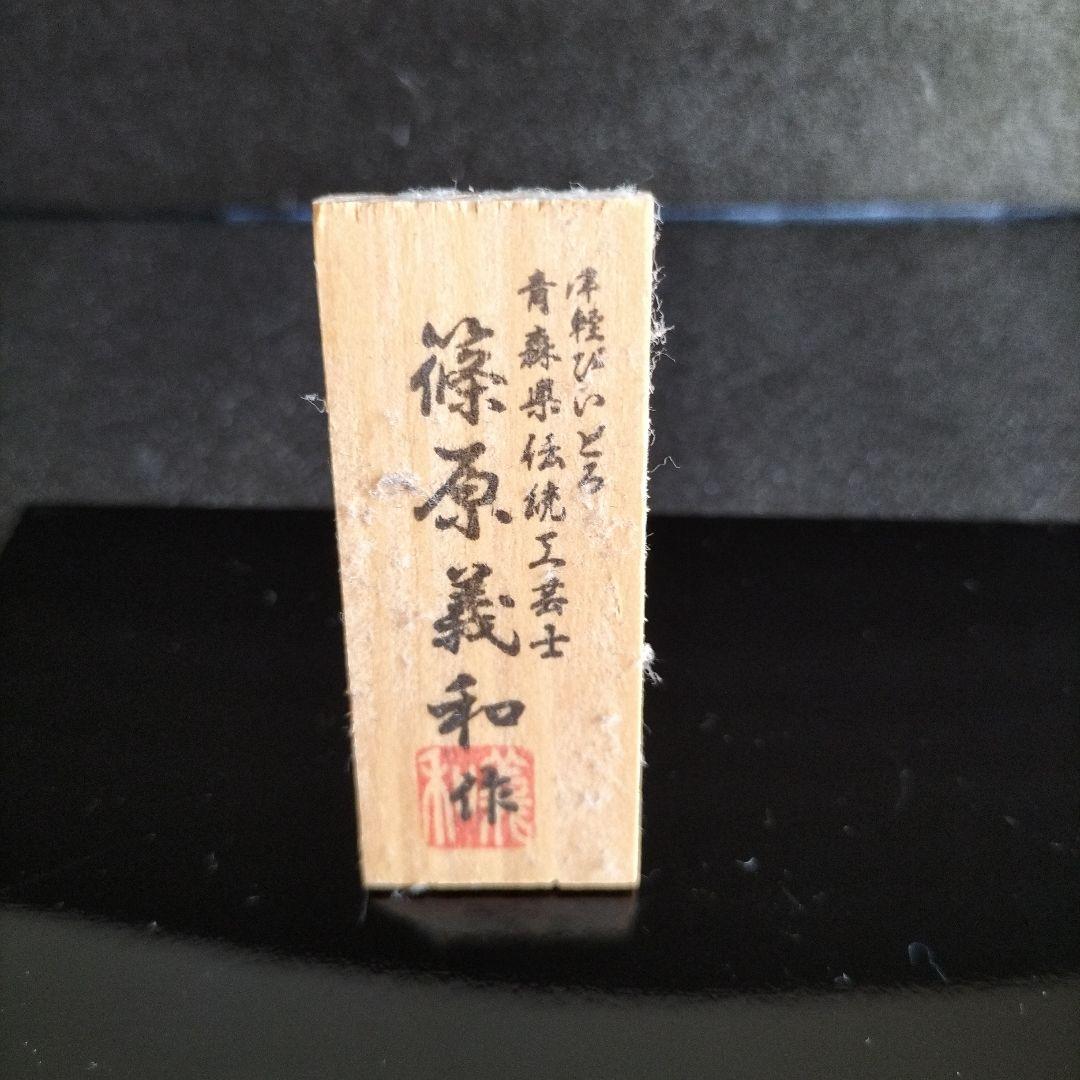 津軽びいどろ
青森県伝統工芸士
篠原義和作
義和